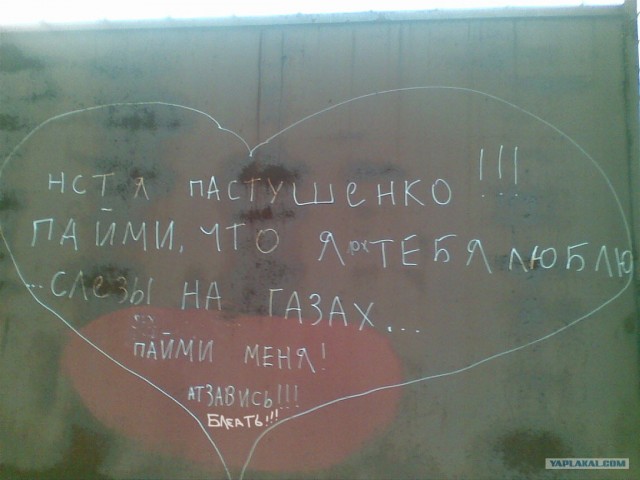 НСТЯ ПАСТУШЕНКО!!!
ПАЙМИ, ЧТО Я ТЕБЯ ЛЮБЛЮ
...СЛЕЗЫ НА ГАЗАХ...
ПАЙМИ МЕНЯ!
АТЗАВИСЬ!!!
БЛЕАТЬ!!!
YAPLAKAL.COM